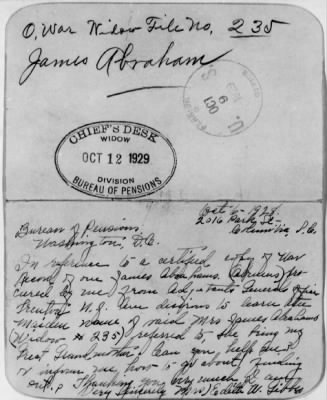 O. War Widow File No. 235
James Abraham
CHIEF'S DESK
WIDOW
OCT 12 1929
DIVISION
BUREAU OF PENSIONS
2016 Park St.
Columbia, S.C.
Bureau of Pensions,
Washington, D.C.
In reference to a certified copy of War
Record of one James Abrahams. (Abrams) pro
cured by me, from Adjutants General Office
Trenton N.J. Am desirous to learn the
maiden name of said Mrs James Abrahams
(Widow # 235) referred to – she being my
Great Grandmother. Can you help me?
or inform me how to go about finding
out? Thanking you very much, I am,
Very Sincerely Mrs Edith A. Gibbs